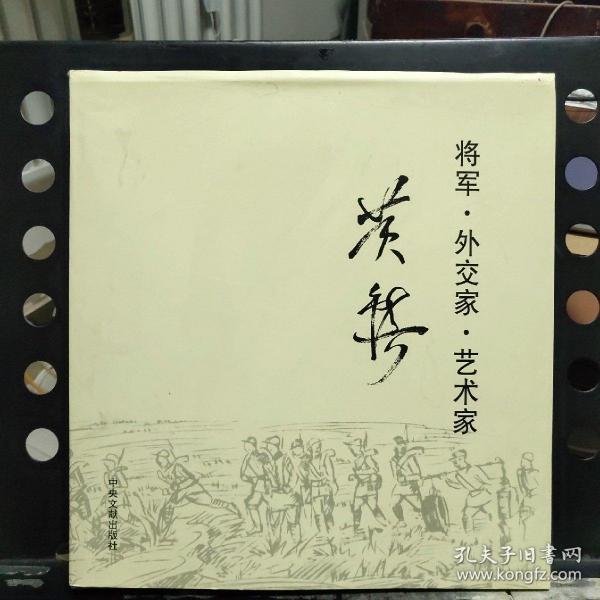 将军·外交家·艺术家
黄镇
中央文献出版社
孔夫子旧书网
www.kongfz.com